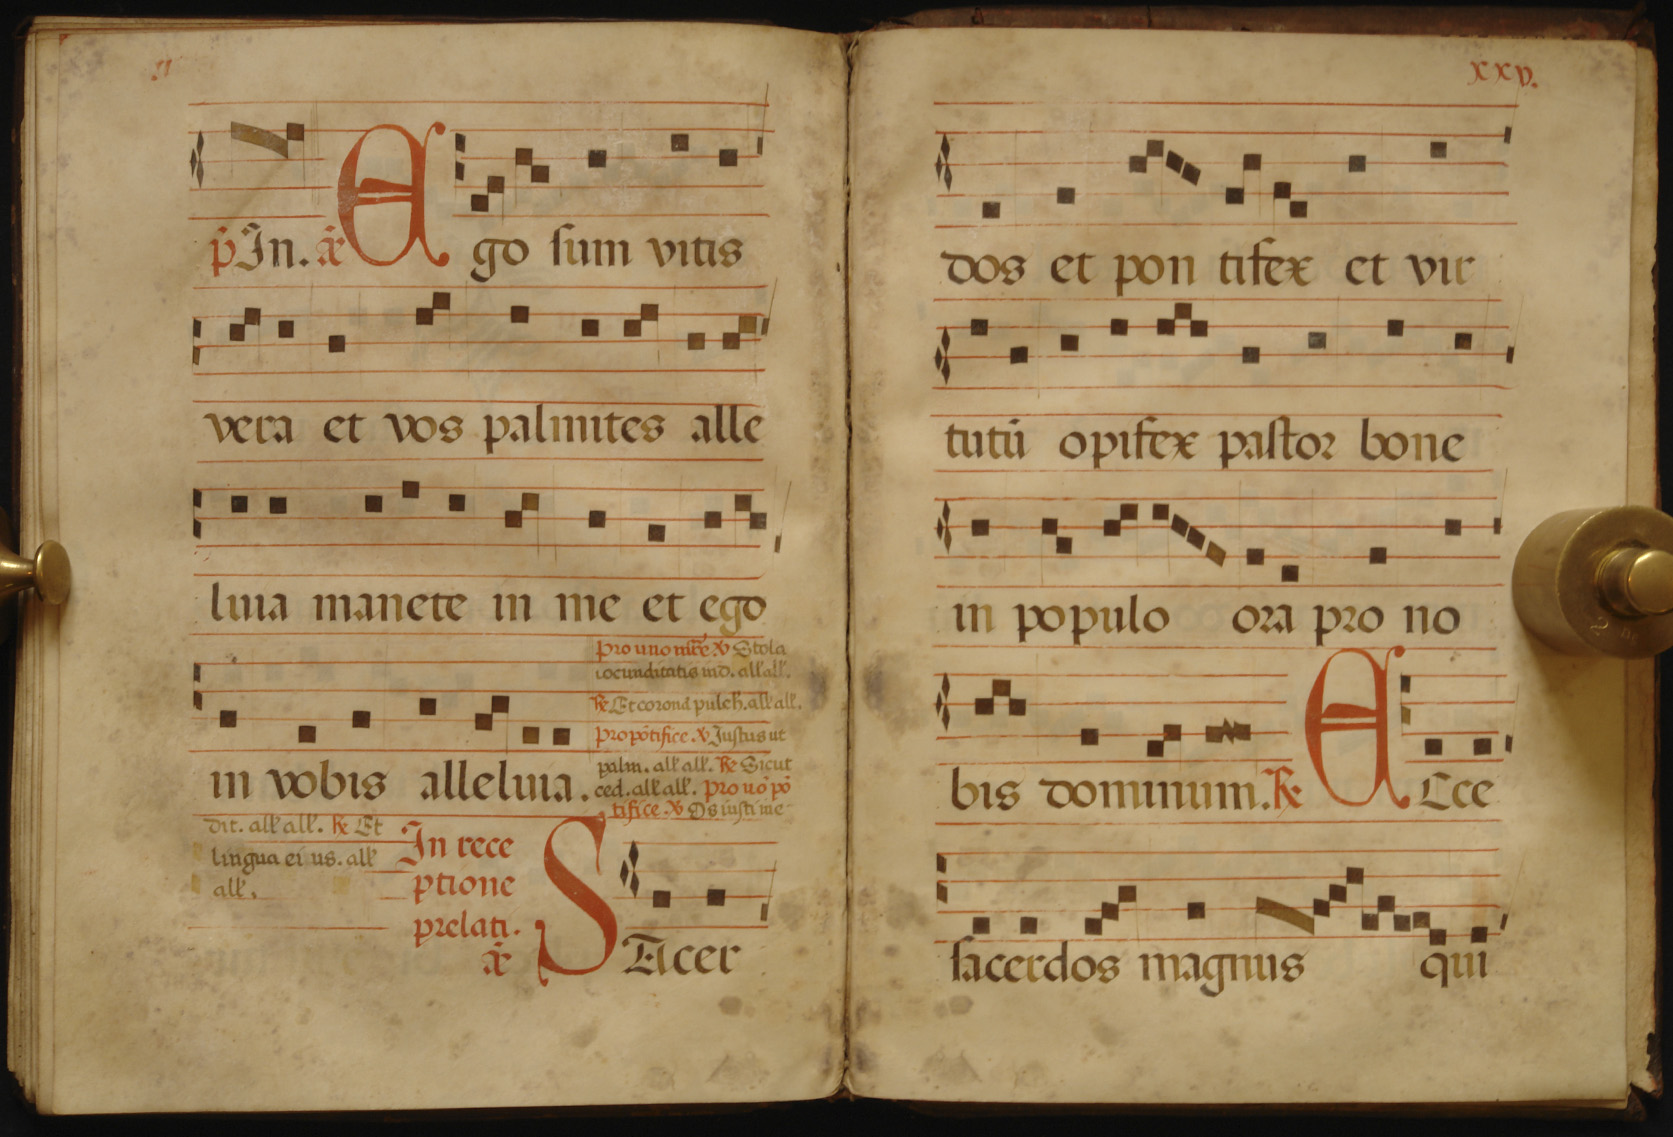 p̄ In. añ Ego sum vitis
vera et vos palmites alle
luia manete in me et ego
Pro uno mr̄e ℣ Stola
iocunditatis ind. all' all'.
℟ Et coronā pulch. all' all'.
Pro pōtifice ℣ Justus ut
in vobis alleluia.
palm. all' all'. ℟ Sicut
ced. all' all'. Pro nō pō
tifice ℣ Os iusti me
dit. all' all'. ℟ Et
lingua eius. all'
all'.
In rece
ptione
prelati.
añ
SAcer
xxv.
dos et pon tifex et vir
tutū opifex pastor bone
in populo ora pro no
bis dominum. ℟ Ecce
sacerdos magnus qui